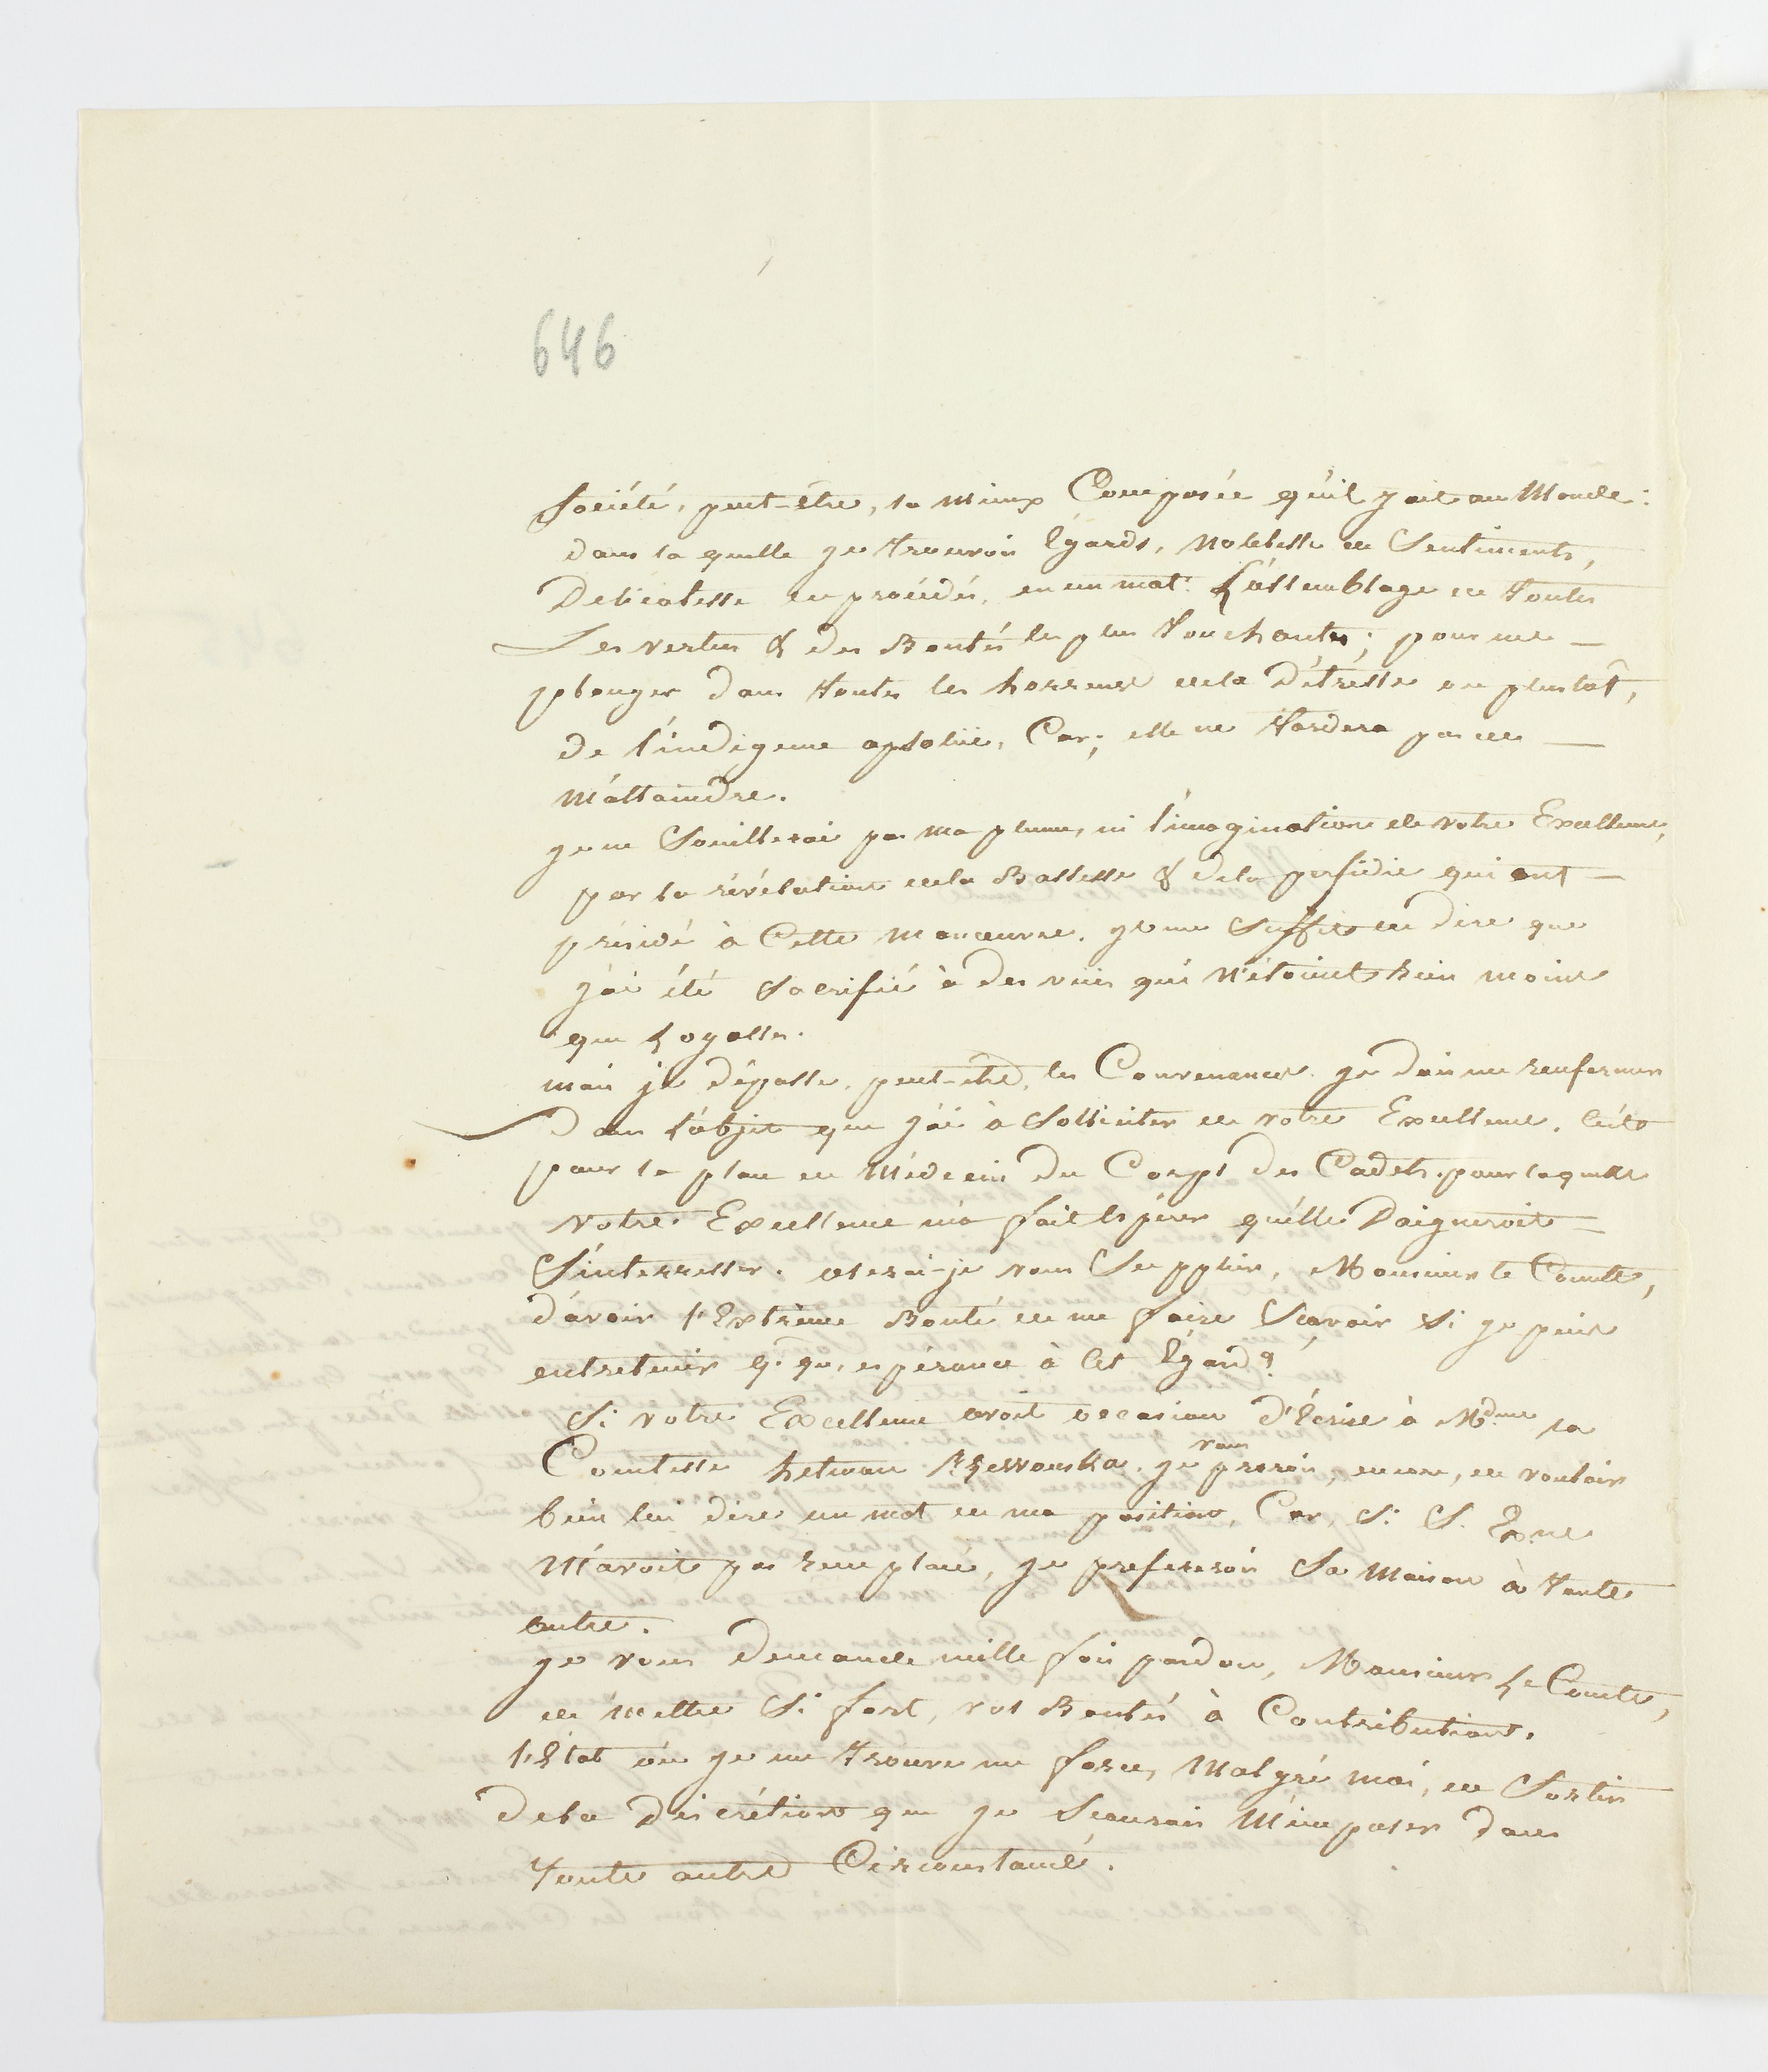 646
Société, peut-être, la mieux Composée qu'il y ait au Monde:
dans la quelle je trouvois Egards, Noblesse de Sentiments,
Delicatesse de procédés, en un mot: L'assemblage de toutes
Les vertus & des Bontés les plus touchantes; pour me —
plonger dans toutes les horreurs de la Détresse ou plustôt,
de l'indigence absolüe, Car; elle ne tardera pas de —
M'attaindre.
je ne Souillerai pas ma plume, ni l'imagination de votre Excellence,
par la révélation de la Bassesse & de la perfidie qui ont —
présidé à Cette manœuvre. il me Suffit de dire que
j'ai été Sacrifié à des vües qui N'étoient rien moins
que Loyalles.
mais je dépasse, peut-être, les Convenances. je dois me renfermer
Dans L'objet que j'ai à Solliciter de votre Excellence. C'est
pour la place de Médecin du Corps des Cadets, pour laquelle
votre Excellence m'a fait espérer qu'elle Daigneroit —
S'interresser. oserai-je vous Supplier, Monsieur le Comte,
d'avoir l'Extrème Bonté de me faire Scavoir Si je puis
entretenir q. que, espérance à Cet Egard?
Si votre Excellence avoit occasion d'Ecrire à Mdme la
Comtesse hetman Rzewouska. je vous prerois, encore, de vouloir
bien lui dire un mot de ma position, Car, Si S. Exne
M'avoit pas remplacé, je prefererois Sa Maison à toute
autre.
je vous Demande mille fois pardon, Monsieur Le Comte,
de mettre Si fort, vos Bontés à Contribution.
l'Etat où je me trouve me force, Malgré moi, de Sortir
de la discrétion que je Scaurois M'imposer dans
toute autre Circonstance.